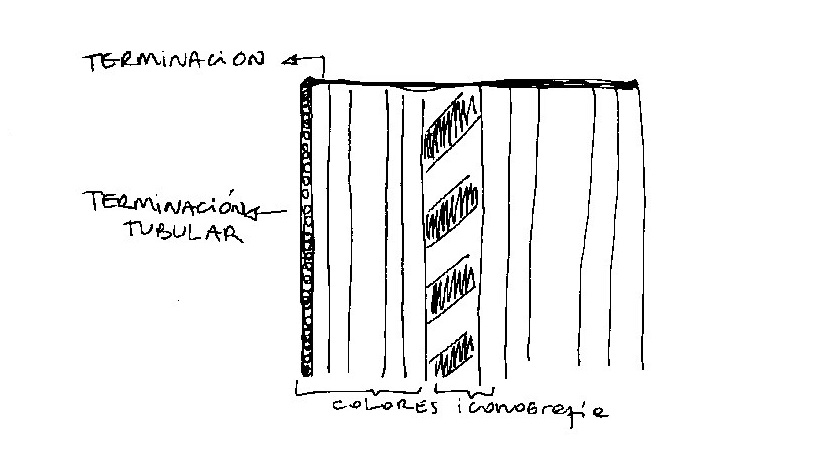 TERMINACION
TERMINACIÓN
TUBULAR
COLORES iconografia